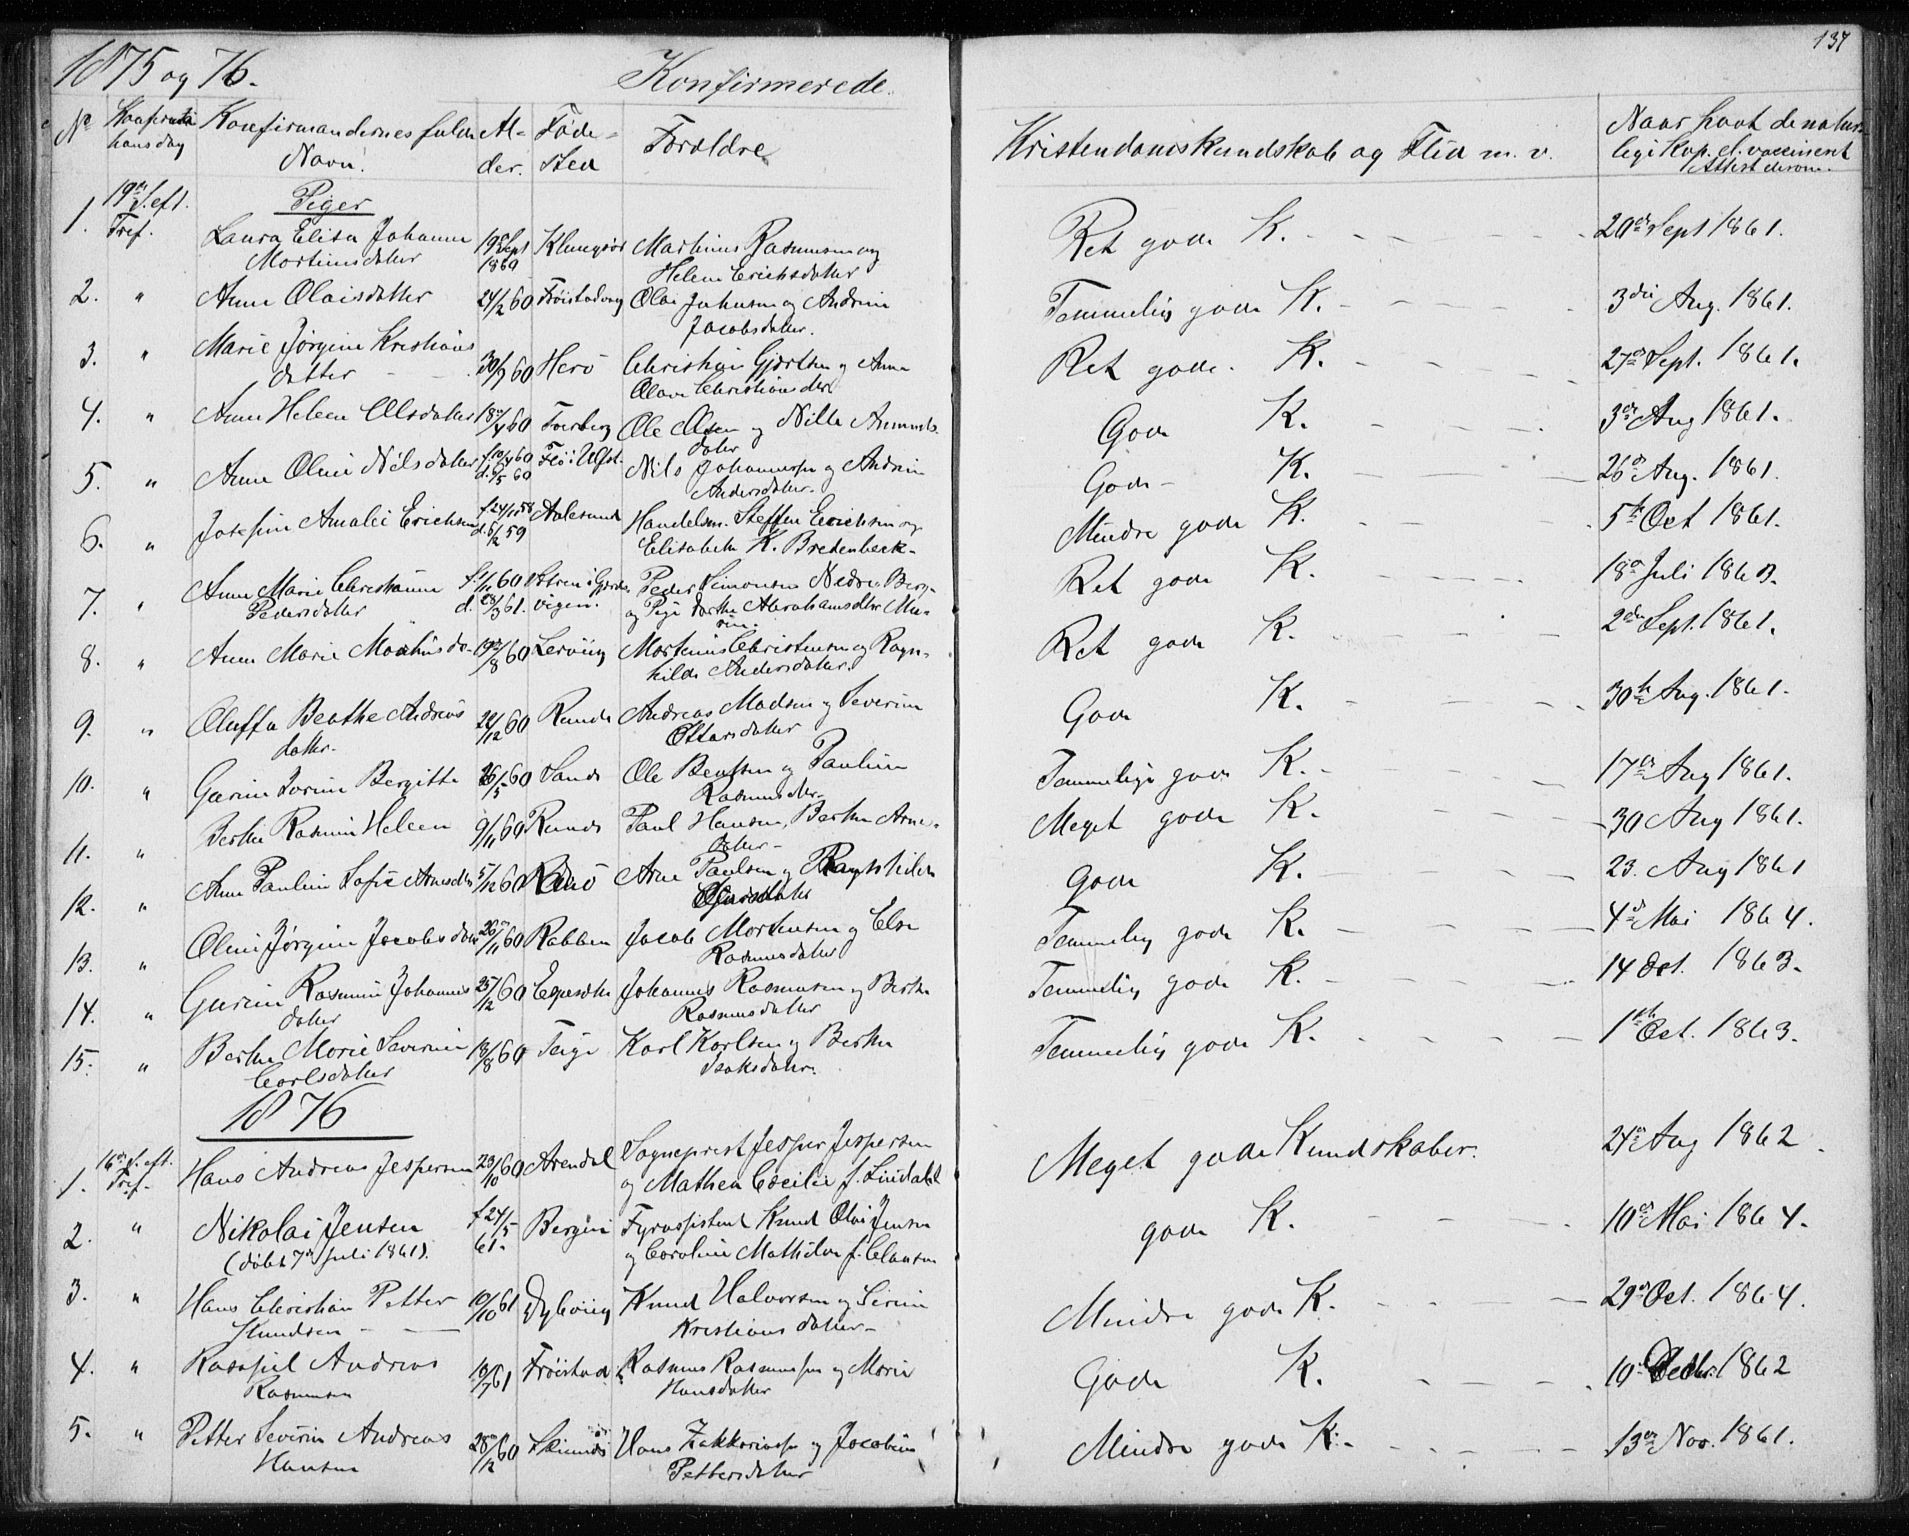 137
1875 og 76.
Konfirmerede.
No
Konfirmandernes fulde Navn.
Alder.
Fødested
Forældre
Kristendomskundskab og Flid m. v.
Naar havt de naturlige Kop. el. vaccineret
Attest derom.
Piger
1. 19de S. eft. Tref. Laura Elisa Johanne 19de Sept Klungsør Martinus Rasmussen og Ret gode K. 20de Sept 1861.
Martinusdatter 1860 Helene Erichsdatter
2. " Anne Olaisdatter 24/2 60 Frøistadvog Olai Johnsen og Andrine Temmelig gode K. 3die Aug. 1861.
Jacobsdatter.
3. " Marie Jørgine Kristians 30/7 60 Herø Christian Gjertsen og Anne Ret gode. K. 27de Sept. 1861.
datter Olave Christiansdtr
4. " Anne Helene Olsdatter 18/4 60 Torberg Ole Olsen og Nille Ammunds Gode K. 3die Aug 1861.
datter
5. " Anne Oline Nilsdatter f. 10/4 60 Nils Johannessen og Andrine Gode K. 26de Aug. 1861.
d. 6/5 60 Andersdatter.
6. " Josefine Amalie Erichsen f. 24/11 58 Aalesund Handelsm. Steffen Erichsen og Mindre gode K. 5te Oct 1861.
d. 5/2 59 Elisabeth K. Bredenbeck
7. " Anne Marie Christianne f. 1/11 60 Peder Simonsen Nedre Berg Ret gode K. 18de Juli 1863.
Pedersdatter d. 28/3 61. vigen. og Pige Dorthe Abrahamsdtr
8. " Anne Marie 19/8 60 Lerving Martinus Christensen og Ragn- Ret gode K. 2den Sept. 1861.
hilde Andersdatter.
9. " Oluffa Beathe Andreas 22/12 60 Runde Andreas Madsen og Severine Gode K. 30te Aug. 1861.
datter. Ottarsdatter
10. " Garine Lorine Bergitte 26/5 60 Sande Ole Bentsen og Pauline Temmelige gode K. 17de Aug 1861.
Rasmusdtr.
11. " Berthe Rasmine Helene 9/11 60 Runde Paul Hansen, Berthe Arne- Meget gode K. 30 Aug 1861.
datter
12. " Anne Pauline Sofie Arnesdtr 5/12 60 Arne Paulsen og Gode K. 23. Aug 1861
13. " Oline Jørgine Jacobsdatter 26/11 60 Rabben Jacob Mortensen og Else Temmelig gode K. 4de Mai 1864.
Rasmusdatter
14. " Gurine Rasmine Johannes 25/12 60 Johannes Rasmussen og Berthe Temmelig gode K. 14 Oct. 1863.
datter Rasmusdatter
15. " Berthe Marie Severine 13/8 60 Teige Karl Karlsen og Berthe Temmelig gode K. 1ste Oct. 1863.
Carlsdatter Isaksdatter.
1876
1. 16de S. eft. Tref. Hans Andreas Jespersen 23/10 60 Arendal Sogneprest Jesper Jespersen Meget gode Kundskaber. 24de Aug 1862.
og Mathea Cecilie f. Lindahl
2. " Nikolai Jensen f 24/5 61. Bergen Fyrassistent Knud Olai Jensen gode K. 10de Mai 1864.
(døbt 7de Juli 1861). og Caroline Mathilde f. Clausen
3. " Hans Christian Petter 10/10 61 Knud Halvorsen og Serine Mindre gode K. 29de Oct. 1864.
Knudsen Kristiansdatter
4. " Andreas 10/7 61 Frøistad Rasmus Rasmussen og Marie Gode K. 10 Decbr. 1862
Rasmussen Hansdatter
5. " Petter Severin Andreas 28/12 60 Hans Zakkariassen og Jacobine Mindre gode K. 13de Nov. 1861.
Hansen Pettersdatter